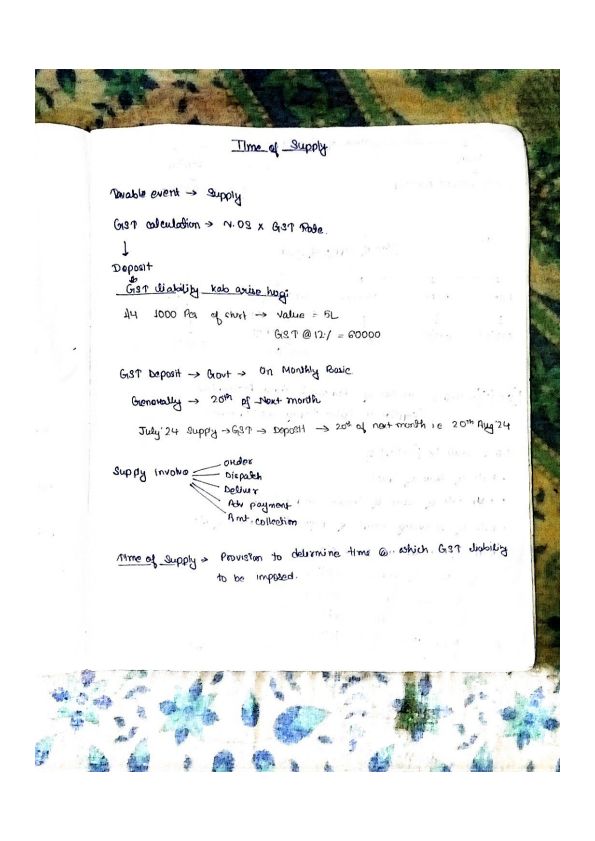 Time of Supply
Taxable event → Supply
GST calculation → V.OS x GST Rate.
↓
Deposit
↳ GST liability kab arise hogi
1000 Pcs of shirt → value = 5L
GST @ 12% = 60000
GST Deposit → Govt → On Monthly Basic
Generally → 20th of Next month
July'24 Supply → GST → Deposit → 20th of next month i.e 20th Aug'24
Supply involve
Order
Dispatch
Deliver
Adv payment
Amt. collection
Time of Supply → Provision to determine time @ which GST liability
to be imposed.